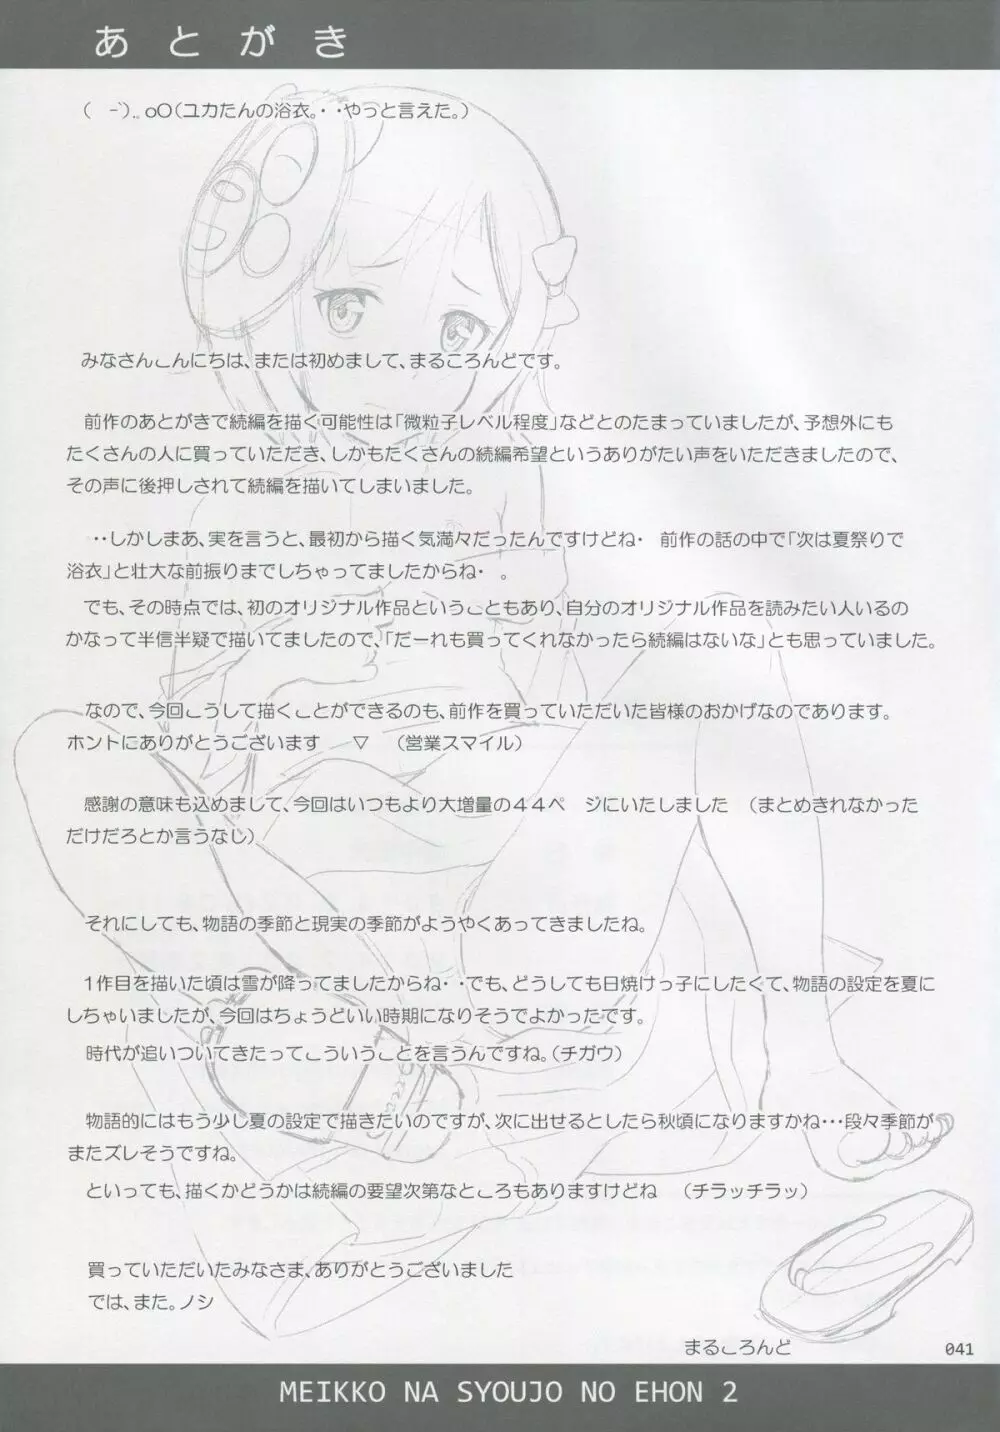 あとがき
(　-`)..oO(ユカたんの浴衣。・・やっと言えた。)
みなさんこんにちは、または初めまして、まるころんどです。
前作のあとがきで続編を描く可能性は「微粒子レベル程度」などとのたまっていましたが、予想外にも
たくさんの人に買っていただき、しかもたくさんの続編希望というありがたい声をいただきましたので、
その声に後押しされて続編を描いてしまいました。
・・しかしまあ、実を言うと、最初から描く気満々だったんですけどね・　前作の話の中で「次は夏祭りで
浴衣」と壮大な前振りまでしちゃってましたからね・　。
でも、その時点では、初のオリジナル作品ということもあり、自分のオリジナル作品を読みたい人いるの
かなって半信半疑で描いてましたので、「だーれも買ってくれなかったら続編はないな」とも思っていました。
なので、今回こうして描くことができるのも、前作を買っていただいた皆様のおかげなのであります。
ホントにありがとうございます　▽　(営業スマイル)
感謝の意味も込めまして、今回はいつもより大増量の44ペ　ジにいたしました　(まとめきれなかった
だけだろとか言うなし)
それにしても、物語の季節と現実の季節がようやくあってきましたね。
1作目を描いた頃は雪が降ってましたからね・・でも、どうしても日焼けっ子にしたくて、物語の設定を夏に
しちゃいましたが、今回はちょうどいい時期になりそうでよかったです。
時代が追いついてきたってこういうことを言うんですね。(チガウ)
物語的にはもう少し夏の設定で描きたいのですが、次に出せるとしたら秋頃になりますかね・・・段々季節が
またズレそうですね。
といっても、描くかどうかは続編の要望次第なところもありますけどね　(チラッチラッ)
買っていただいたみなさま、ありがとうございました
では、また。ノシ
まるころんど
041
MEIKKO NA SYOUJO NO EHON 2